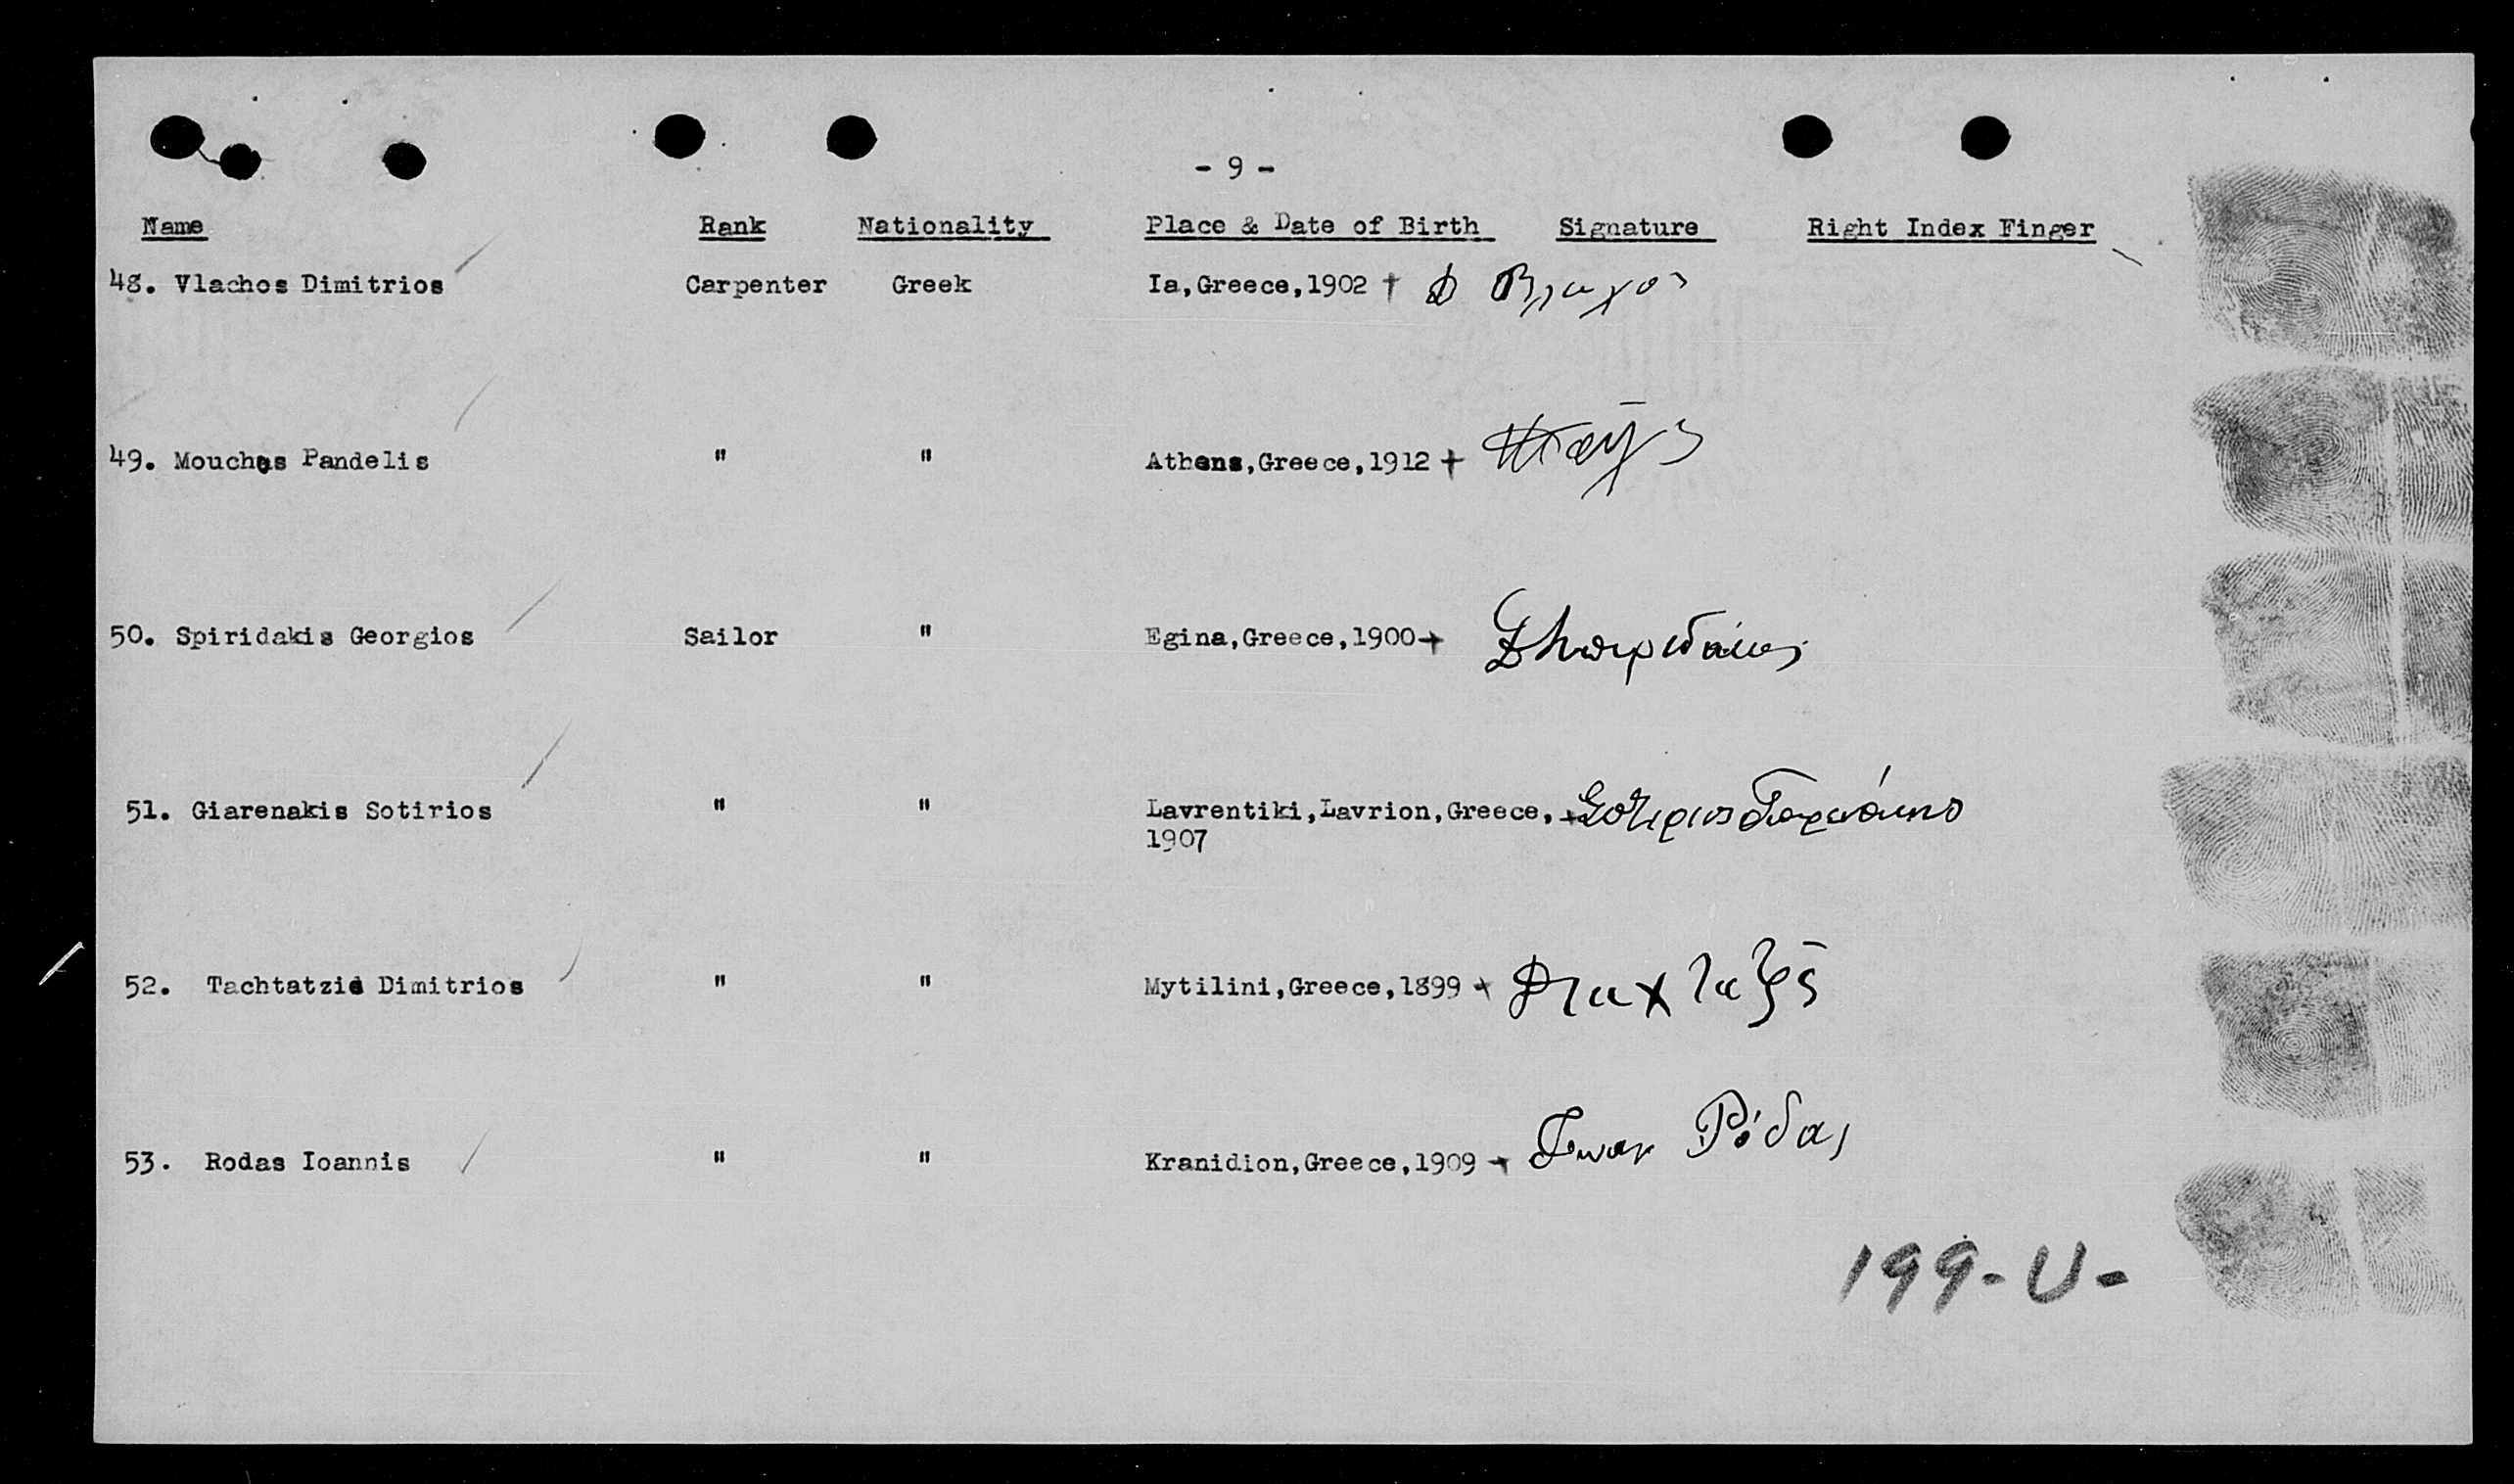 - 9 -
Name Rank Nationality Place & Date of Birth Signature Right Index Finger
48. Vlachos Dimitrios Carpenter Greek Ia,Greece,1902 + Δ Βλαχος
49. Mouchas Pandelis " " Athens,Greece,1912 +
50. Spiridakis Georgios Sailor " Egina,Greece,1900 + Σπυριδάκις
51. Giarenakis Sotirios " " Lavrentiki,Lavrion,Greece, + Σοτιριος Γιαρενάκης
1907
52. Tachtatzis Dimitrios " " Mytilini,Greece,1899 + Δ Ταχταζῆς
53. Rodas Ioannis " " Kranidion,Greece,1909 + Ιωαν Ρόδας
199-U-